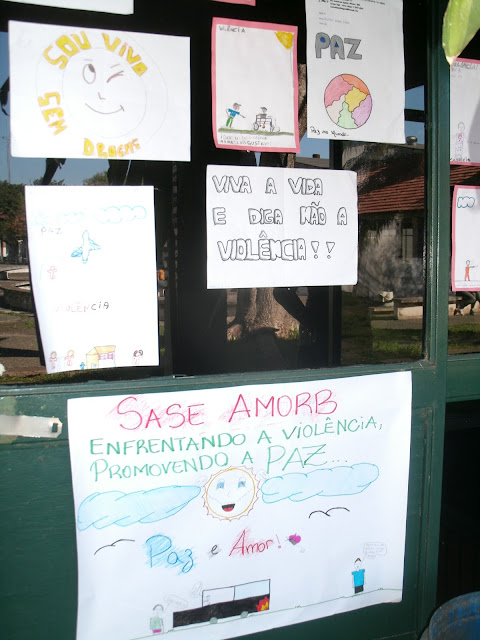 SOU VIVO
SEM
DROGAS
VIOLÊNCIA
PAZ
Paz no Mundo.
PAZ
VIOLÊNCIA
VIVA A VIDA
E DIGA NÃO A
VIOLÊNCIA!!
SASE AMORB
ENFRENTANDO A VIOLÊNCIA,
PROMOVENDO A PAZ...
Paz e Amor!